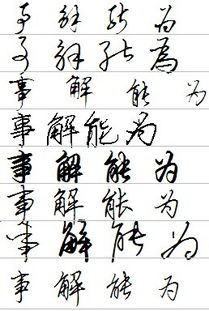 事 解 能 为
事 解 能 為
事 解 能 为
事 解 能 为
事 解 能 为
事 解 能 为
事 解 能 为
事 解 能 为